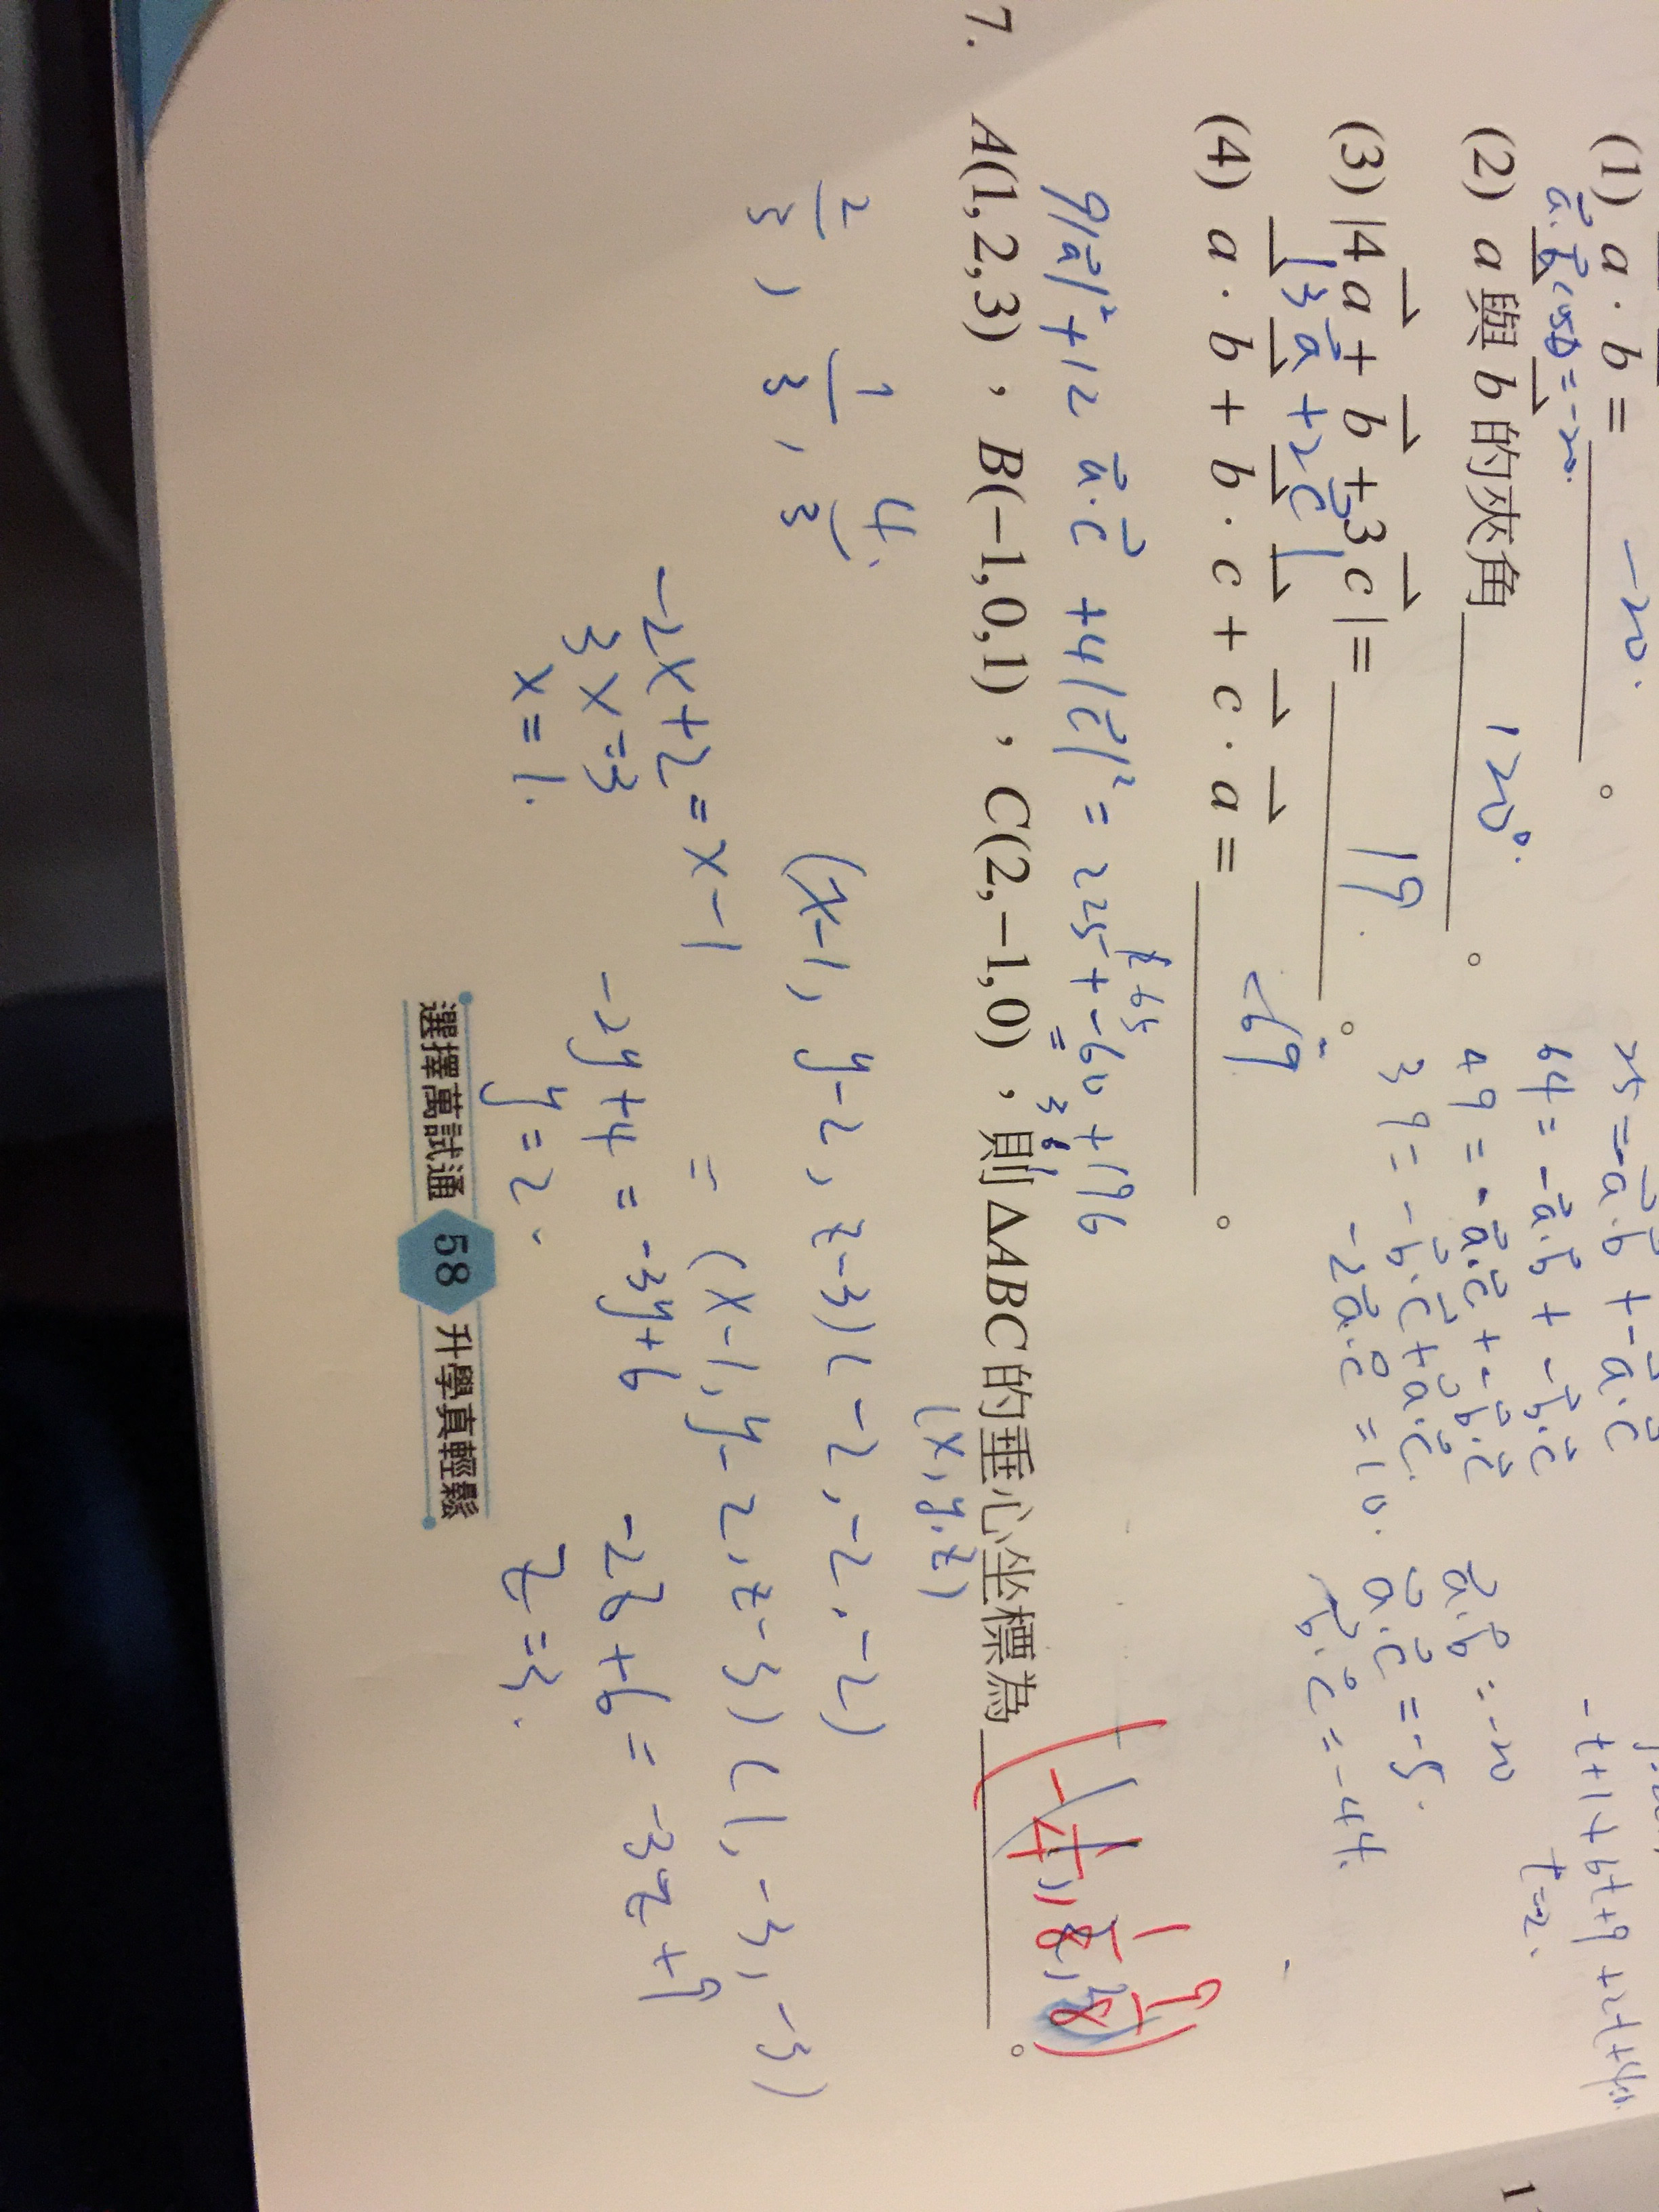 (1) a · b = -20.
a⃗·b⃗cosθ = -20.
(2) a 與 b 的夾角 120°.
(3) |4a + b + 3c| = 19.
|3a⃗ + 2c⃗|
(4) a · b + b · c + c · a = -69
9|a⃗|² + 12 a⃗·c⃗ + 4|c⃗|² = 225 + -60 + 196
361
25 = -a⃗·b⃗ + -a⃗·c⃗
64 = -a⃗·b⃗ + -b⃗·c⃗
49 = -a⃗·c⃗ + -b⃗·c⃗
39 = -b⃗·c⃗ + a⃗·c⃗.
-2a⃗·c⃗ = 10.
a⃗·b⃗ = -20
a⃗·c⃗ = -5.
b⃗·c⃗ = -44.
t=2.
7. A(1,2,3),B(-1,0,1),C(2,-1,0),則△ABC的垂心坐標為 (-1/4, 1/8, 9/8)。
(x,y,z)
2/3, 1/3, 4/3.
(x-1, y-2, z-3)(-2,-2,-2)
= (x-1, y-2, z-3)(1,-3,-3)
-2x+2 = x-1
3x=3
x=1.
-2y+4 = -3y+6
y=2.
-2z+6 = -3z+9
z=3.
選擇萬試通 58 升學真輕鬆